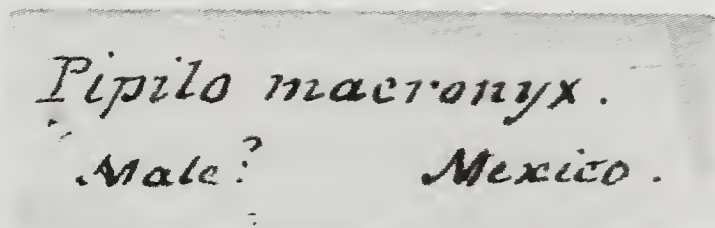 Pipilo macronyx.
Male? Mexico.